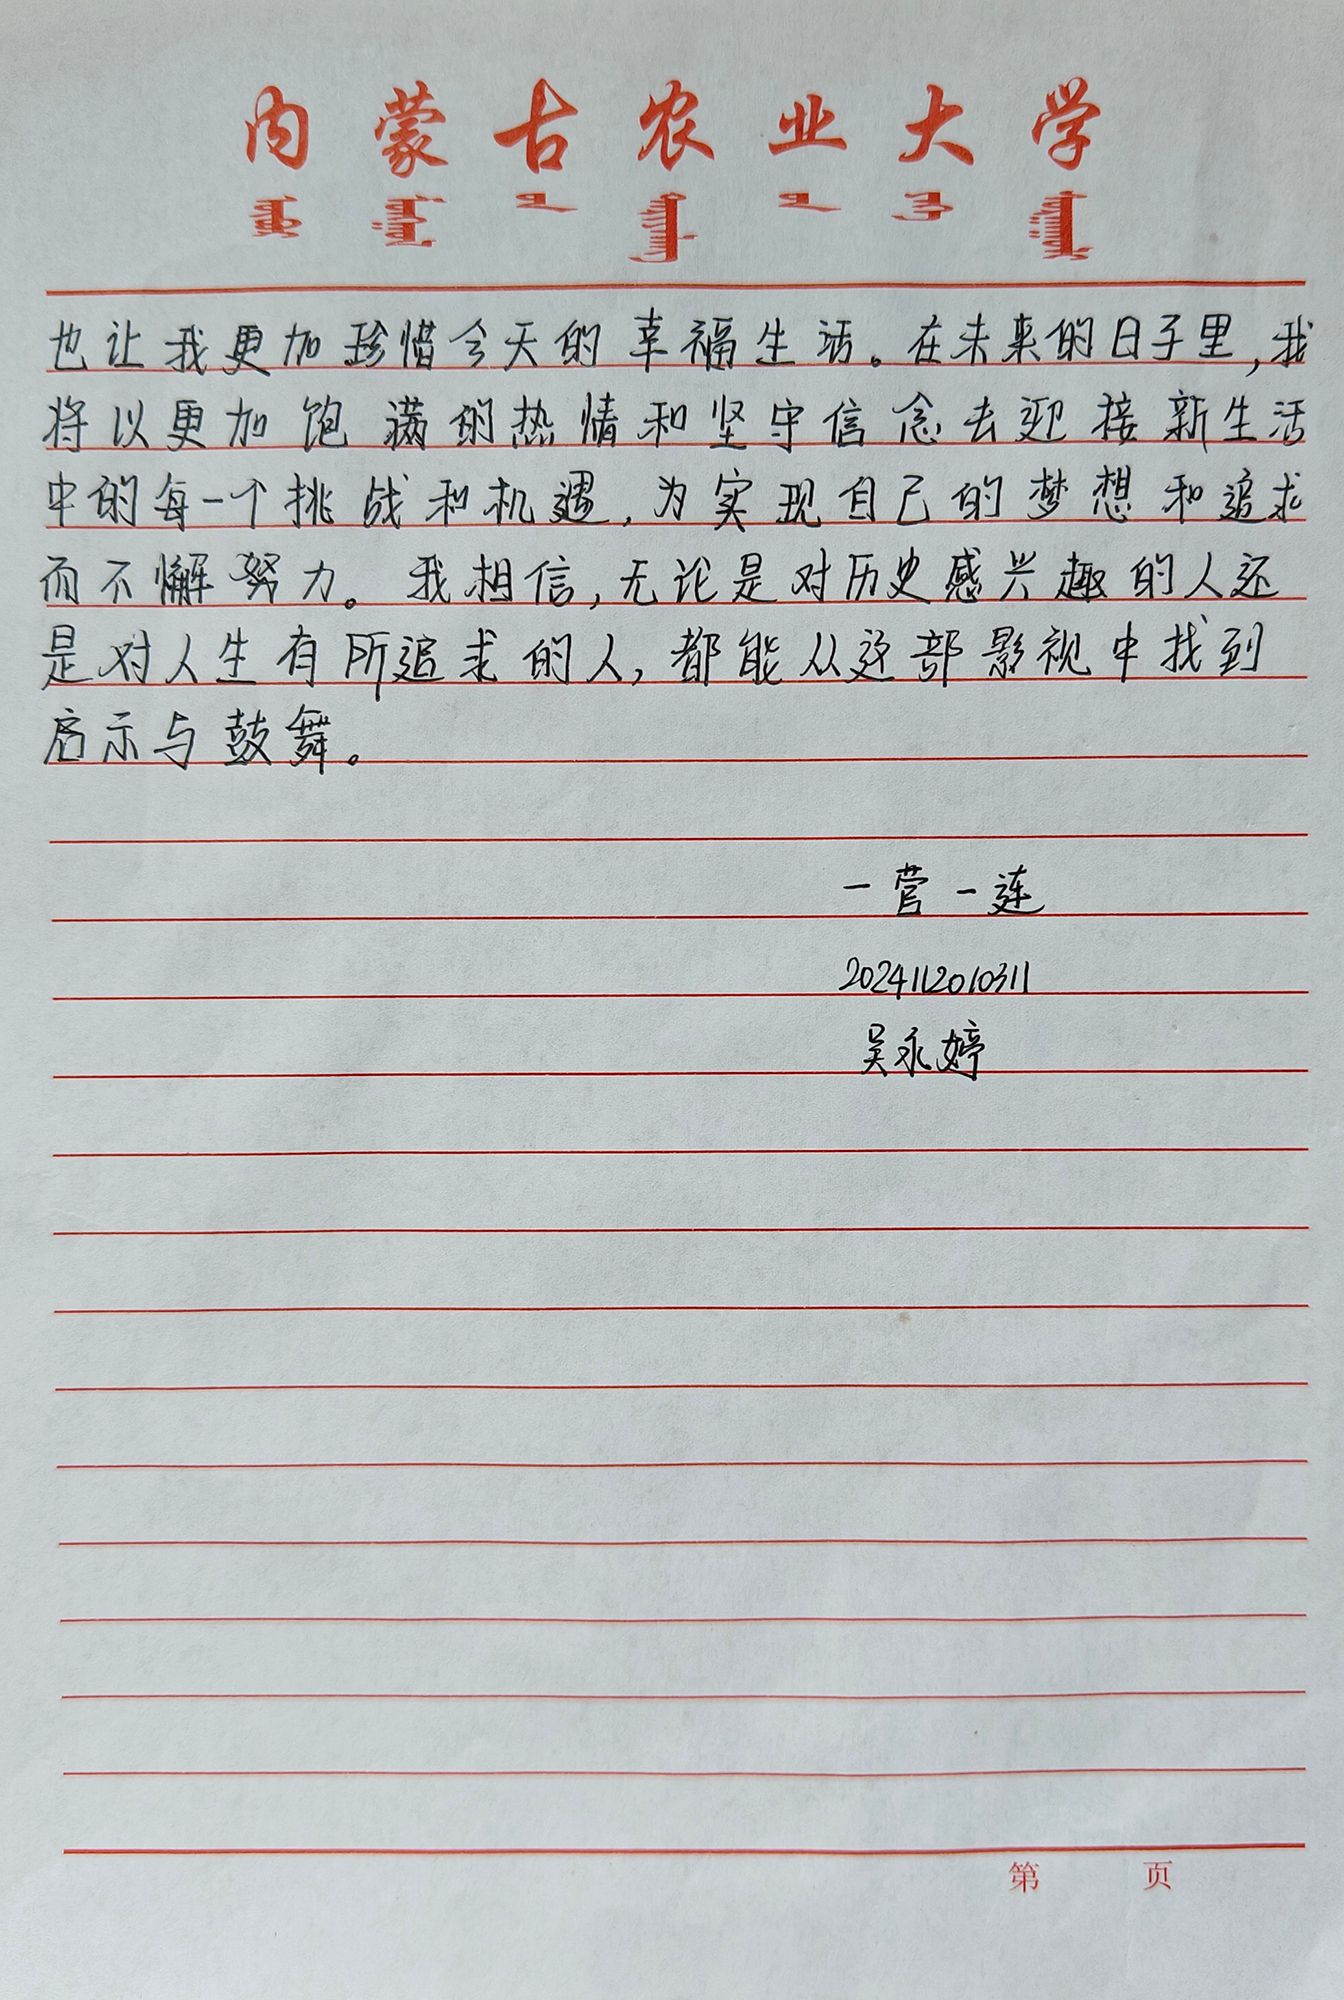 内蒙古农业大学
也让我更加珍惜今天的幸福生活。在未来的日子里,我
将以更加饱满的热情和坚守信念去迎接新生活
中的每一个挑战和机遇,为实现自己的梦想和追求
而不懈努力。我相信,无论是对历史感兴趣的人还
是对人生有所追求的人,都能从这部影视中找到
启示与鼓舞。
一营一连
2024112010311
吴永婷
第 页